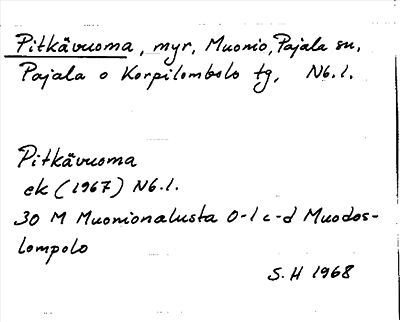 Pitkävuoma, myr, Muonio, Pajala sn,
Pajala o Korpilombolo tg, Nb.l.
Pitkävuoma
ek (1967) Nb.l.
30 M Muonionalusta 0-1 c-d Muodos-
lompolo
S.H 1968